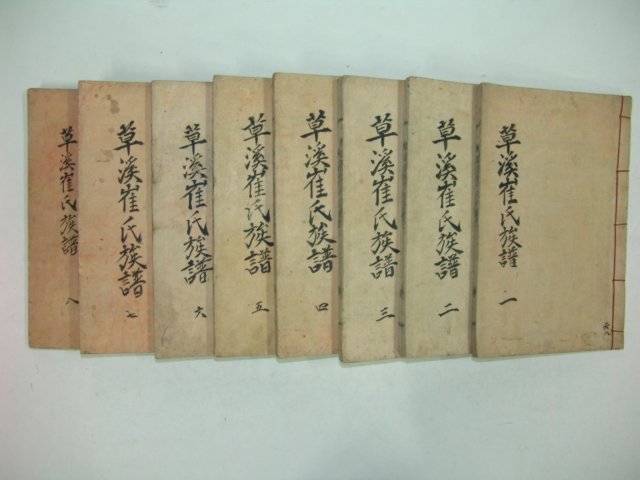 草溪崔氏族譜 一
共八
草溪崔氏族譜 二
草溪崔氏族譜 三
草溪崔氏族譜 四
草溪崔氏族譜 五
草溪崔氏族譜 六
草溪崔氏族譜 七
草溪崔氏族譜 八